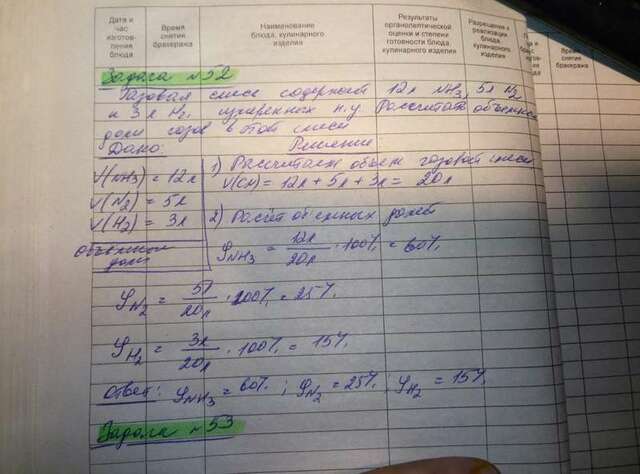 Дата и час изготовления блюда
Время снятия бракеража
Наименование блюда, кулинарного изделия
Результаты органолептической оценки и степени готовности блюда, кулинарного изделия
Разрешение к реализации блюда, кулинарного изделия
Время снятия бракеража
Задача №52
Газовая смесь содержит 12л NH3, 5л N2
и 3л H2, измеренных н.у Рассчитать объемные
доли газов в этой смеси
Дано: Решение
V(NH3) = 12л
V(N2) = 5л
V(H2) = 3л
Объемные доли
1) Рассчитаем объем газовой смеси
V(см) = 12л + 5л + 3л = 20л
2) Расчёт объемных долей
φNH3 = 12л/20л · 100% = 60%
φN2 = 5л/20л · 100% = 25%
φH2 = 3л/20л · 100% = 15%
Ответ: φNH3 = 60%; φN2 = 25%; φH2 = 15%
Задача №53